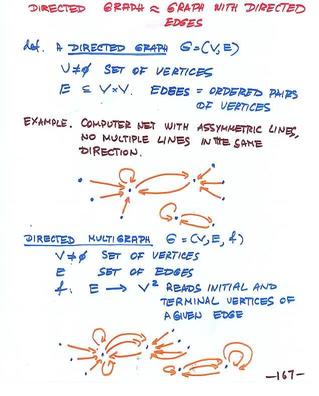 DIRECTED GRAPH ≈ GRAPH WITH DIRECTED
EDGES
def. A DIRECTED GRAPH G=(V,E)
V≠∅ SET OF VERTICES
E ⊆ V×V. EDGES = ORDERED PAIRS
OF VERTICES
EXAMPLE. COMPUTER NET WITH ASSYMETRIC LINES,
NO MULTIPLE LINES IN THE SAME
DIRECTION.
DIRECTED MULTIGRAPH G=(V,E,f)
V≠∅ SET OF VERTICES
E SET OF EDGES
f: E → V² READS INITIAL AND
TERMINAL VERTICES OF
A GIVEN EDGE
-167-